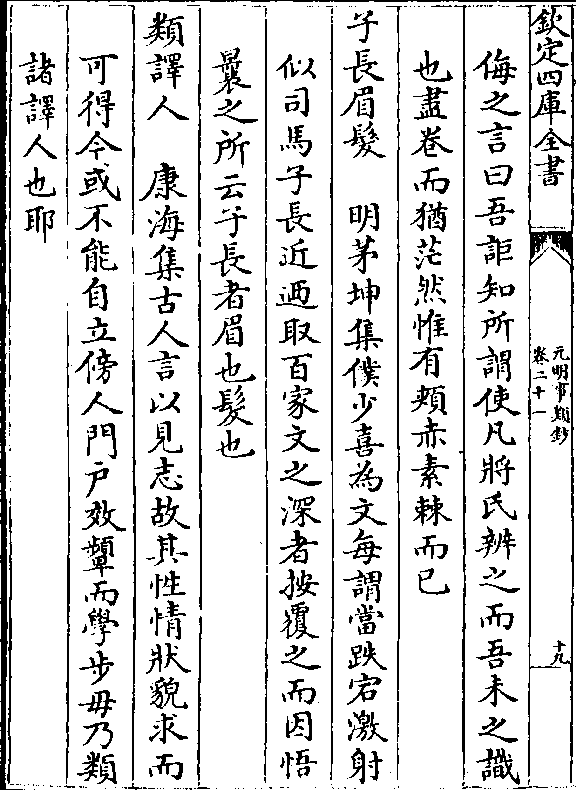 欽定四庫全書
元明事類鈔
卷二十一
十九
侮之言曰吾詎知所謂使凡將氏辨之而吾未之識
也盡卷而猶茫然惟有頰赤素棘而已
子長眉髮　明茅坤集僕少喜為文每謂當跌宕激射
似司馬子長近迺取百家文之深者按覆之而因悟
曩之所云子長者眉也髮也
類譯人　康海集古人言以見志故其性情狀貌求而
可得今或不能自立傍人門户效顰而學步毋乃類
諸譯人也耶